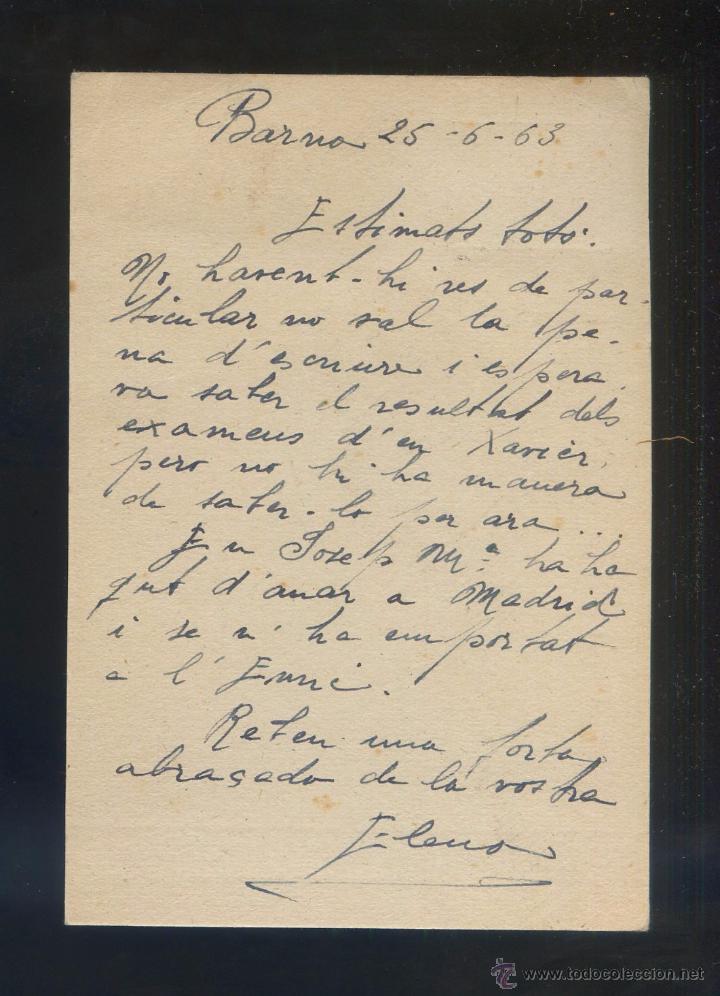 Barna 25-6-63
Estimats tots:
No havent-hi res de par-
ticular no val la pe-
na d'escriure i espera
va saber el resultat dels
examens d'en Xavier,
pero no hi ha manera
de saber-lo per ara...
En Josep Mª ha ha
gut d'anar a Madrid
i se n'ha emportat
a l'Enric.
Rebeu una forta
abraçada de la vostra
Elena
www.todocoleccion.net